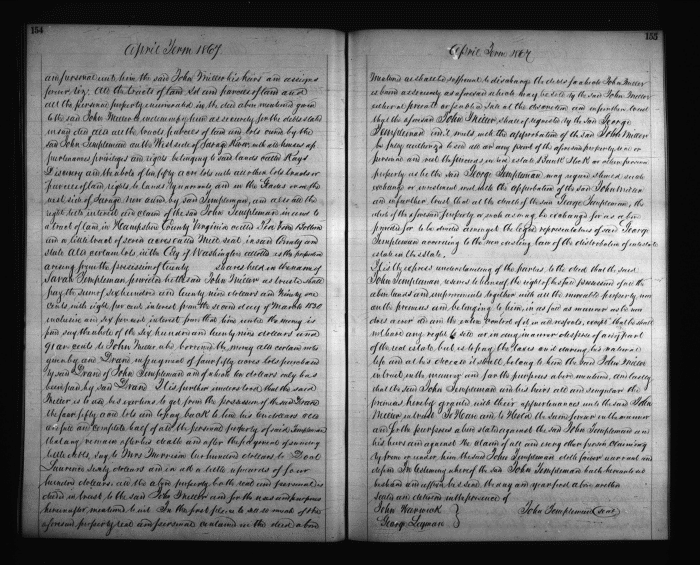 154
April Term 1867
and personal unto him the said John Miller his heirs and assigns
forever viz. All the tracts of land and parcels of land and
all the personal property enumerated in the deed above mentioned given
to the said John Miller to indemnify him as security for the debts stated
in said deed also all the tracts parcels of land and lots owned by the
said John Templeman on the West side of Savage River with all houses
privileges and rights belonging to said lands called Rays
Discovery and the whole of his fifty acre lots with all other lots tracts or
parcels of land rights to lands by warrants and in the Glades or on the
west side of Savage now owned by said Templeman, and also all the
right title interest and claim of the said John Templeman in and to
a tract of land in Hampshire County Virginia called Fox Town Bottom
and a little tract of seven acres called Mill seat in said County and
state All certain lots in the City of Washington
arising from the possession of twenty shares held in the name of
Sarah Templeman provided both said John Miller as trustee shall
pay the sum of six hundred and twenty nine dollars and ninety one
cents with eight per cent interest from the second day of March 1821
inclusive and six per cent interest from that time until the money is
paid say the whole of the six hundred and twenty nine dollars and
91 cents to John Miller who borrowed the money
given by and Drane in payment of four fifty acre lots purchased
by said Drane of John Templeman and of which ten dollars only has
been paid by said Drane It is further understood that the said
Miller is to use his exertions to get from the possession of the said Drane
the four fifty acre lots and to pay back to him his ten dollars
one complete half of all the personal property of said Templeman
that may remain after his death and after the payment of
little debts, say to Mrs Morrison ten hundred dollars to David
Lawrence sixty dollars and in all a little upwards of four
hundred dollars all the above property both real and personal is
deeded in trust to the said John Miller and for the uses and purposes
hereinafter mentioned to wit In the first place to sell so much of the
aforesaid property real and personal contained in the deed above
155
April Term 1867
mentioned as shall be sufficient to discharge the debts for which John Miller
is bound as security as aforesaid which may be sold by the said John Miller
either at private or public sale at his discretion and in further trust
that if the aforesaid John Miller shall be requested by the said George
Templeman and it meets with the approbation of the said John Miller
he fully authorized to sell all or any part of the aforesaid property real or
personal and vest the proceeds in real estate Bank Stock or other personal
property as he the said George Templeman may regard should such
exchange or investment meet with the approbation of the said John Miller
and in further trust that at the death of the said George Templeman, the
whole of the aforesaid property or such as may be exchanged for as above
provided for to be divided amongst the legal representatives of said George
Templeman according to the now existing law of the distribution of intestate
estate in the state.
It is the express understanding of the parties to the deed that the said
John Templeman, retains to himself the right of peaceful possession of all the
above lands and improvements together with all the moveable property now
on the premises and belonging to him, in as full as manner as he now
does or ever did and the entire control of it in all respects, except that he shall
not have any right to sell or in any manner dispose of any part
of the real estate but is to pay the taxes on it during his natural
life and at his decease it shall belong to him the said John Miller
in trust in the meaning and for the purposes above mentioned, and lastly
that the said John Templeman and his heirs all and singular the
premises hereby granted with their appurtenances unto the said John
Miller in trust To Have and to Hold the same forever in the manner
and for the purposes above stated against the said John Templeman and
his heirs and against the claim of all and every other person claiming
by from or under him the said John Templeman doth forever warrant and
defend In testimony whereof the said John Templeman hath hereunto as
husband and affixed his seal the day and year first above written
Signed and delivered in the presence of
John Warnick
George Layman
John Templeman (seal)